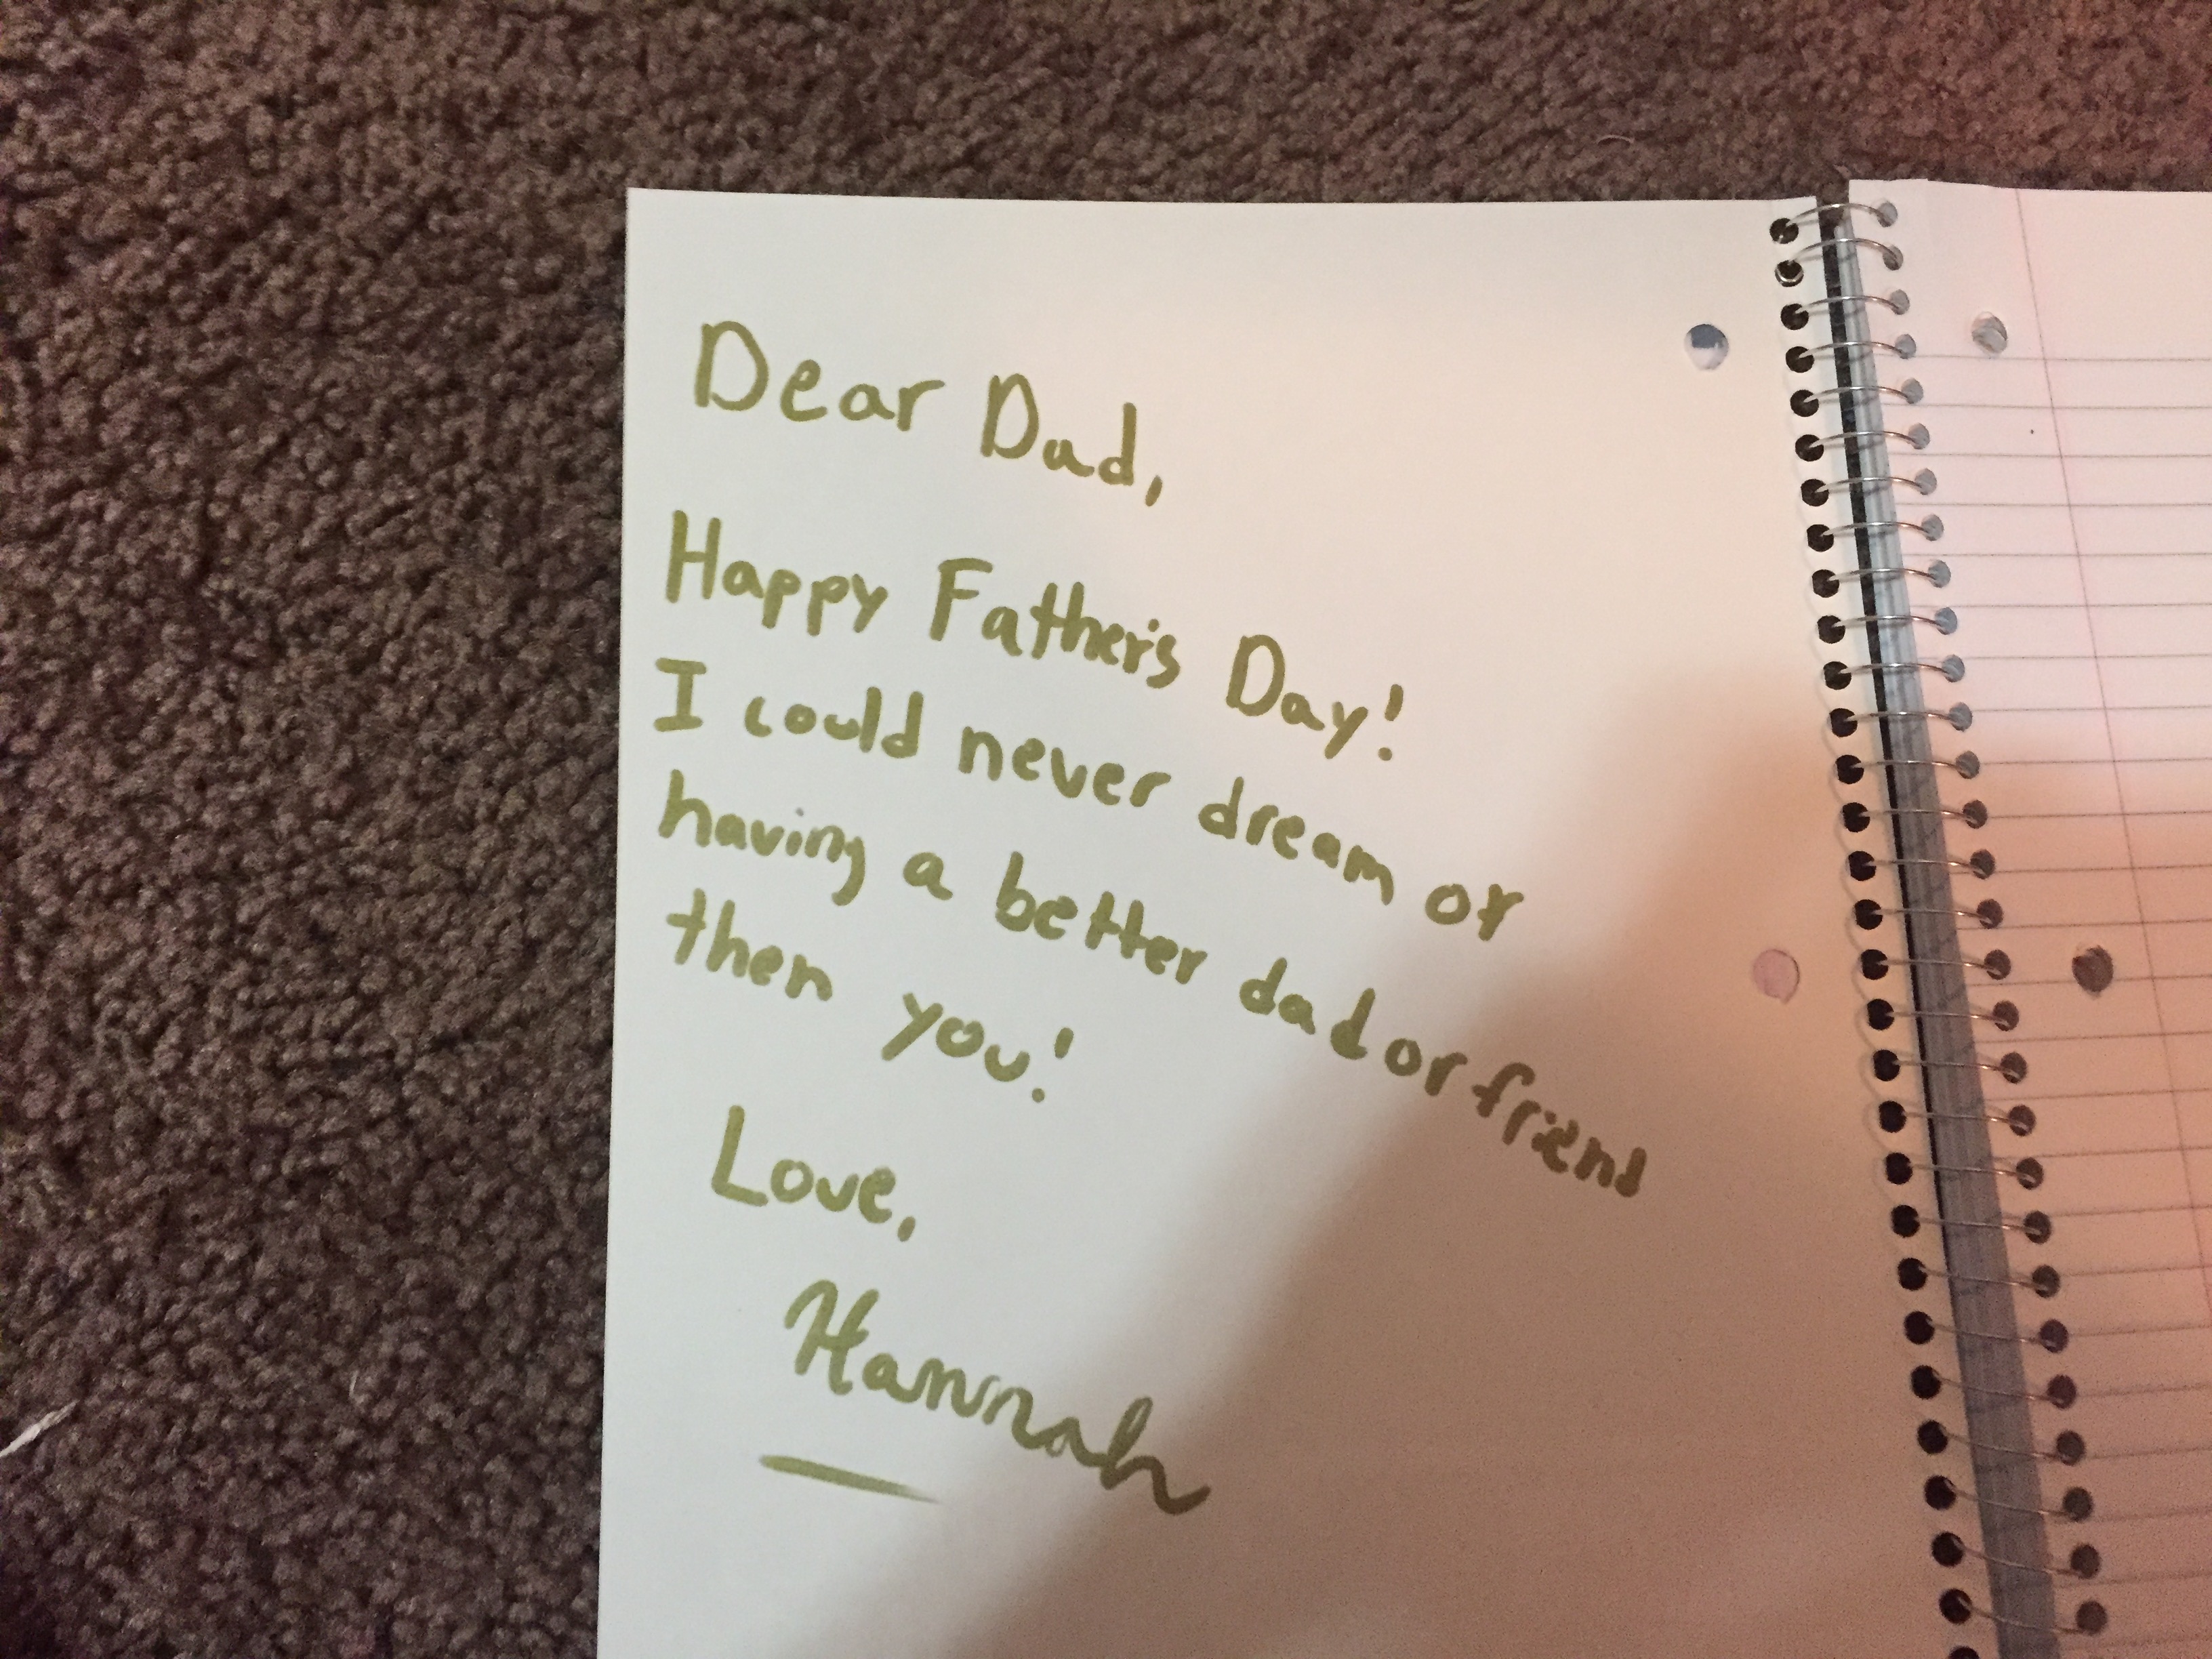 Dear Dad,
Happy Father's Day!
I could never dream of
having a better dad or friend
then you!
Love,
Hannah